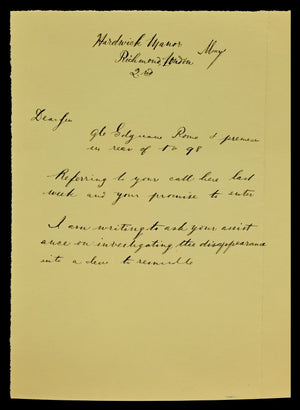 Hardwick Manor May
Richmond London
2nd
Dear Sir
96 Edgware Rome & premes
in rear of to 98
Referring to your call here last
week and your promise to enter
I am writing to ask your assist
ance on investigating the disappearance
into a clew to